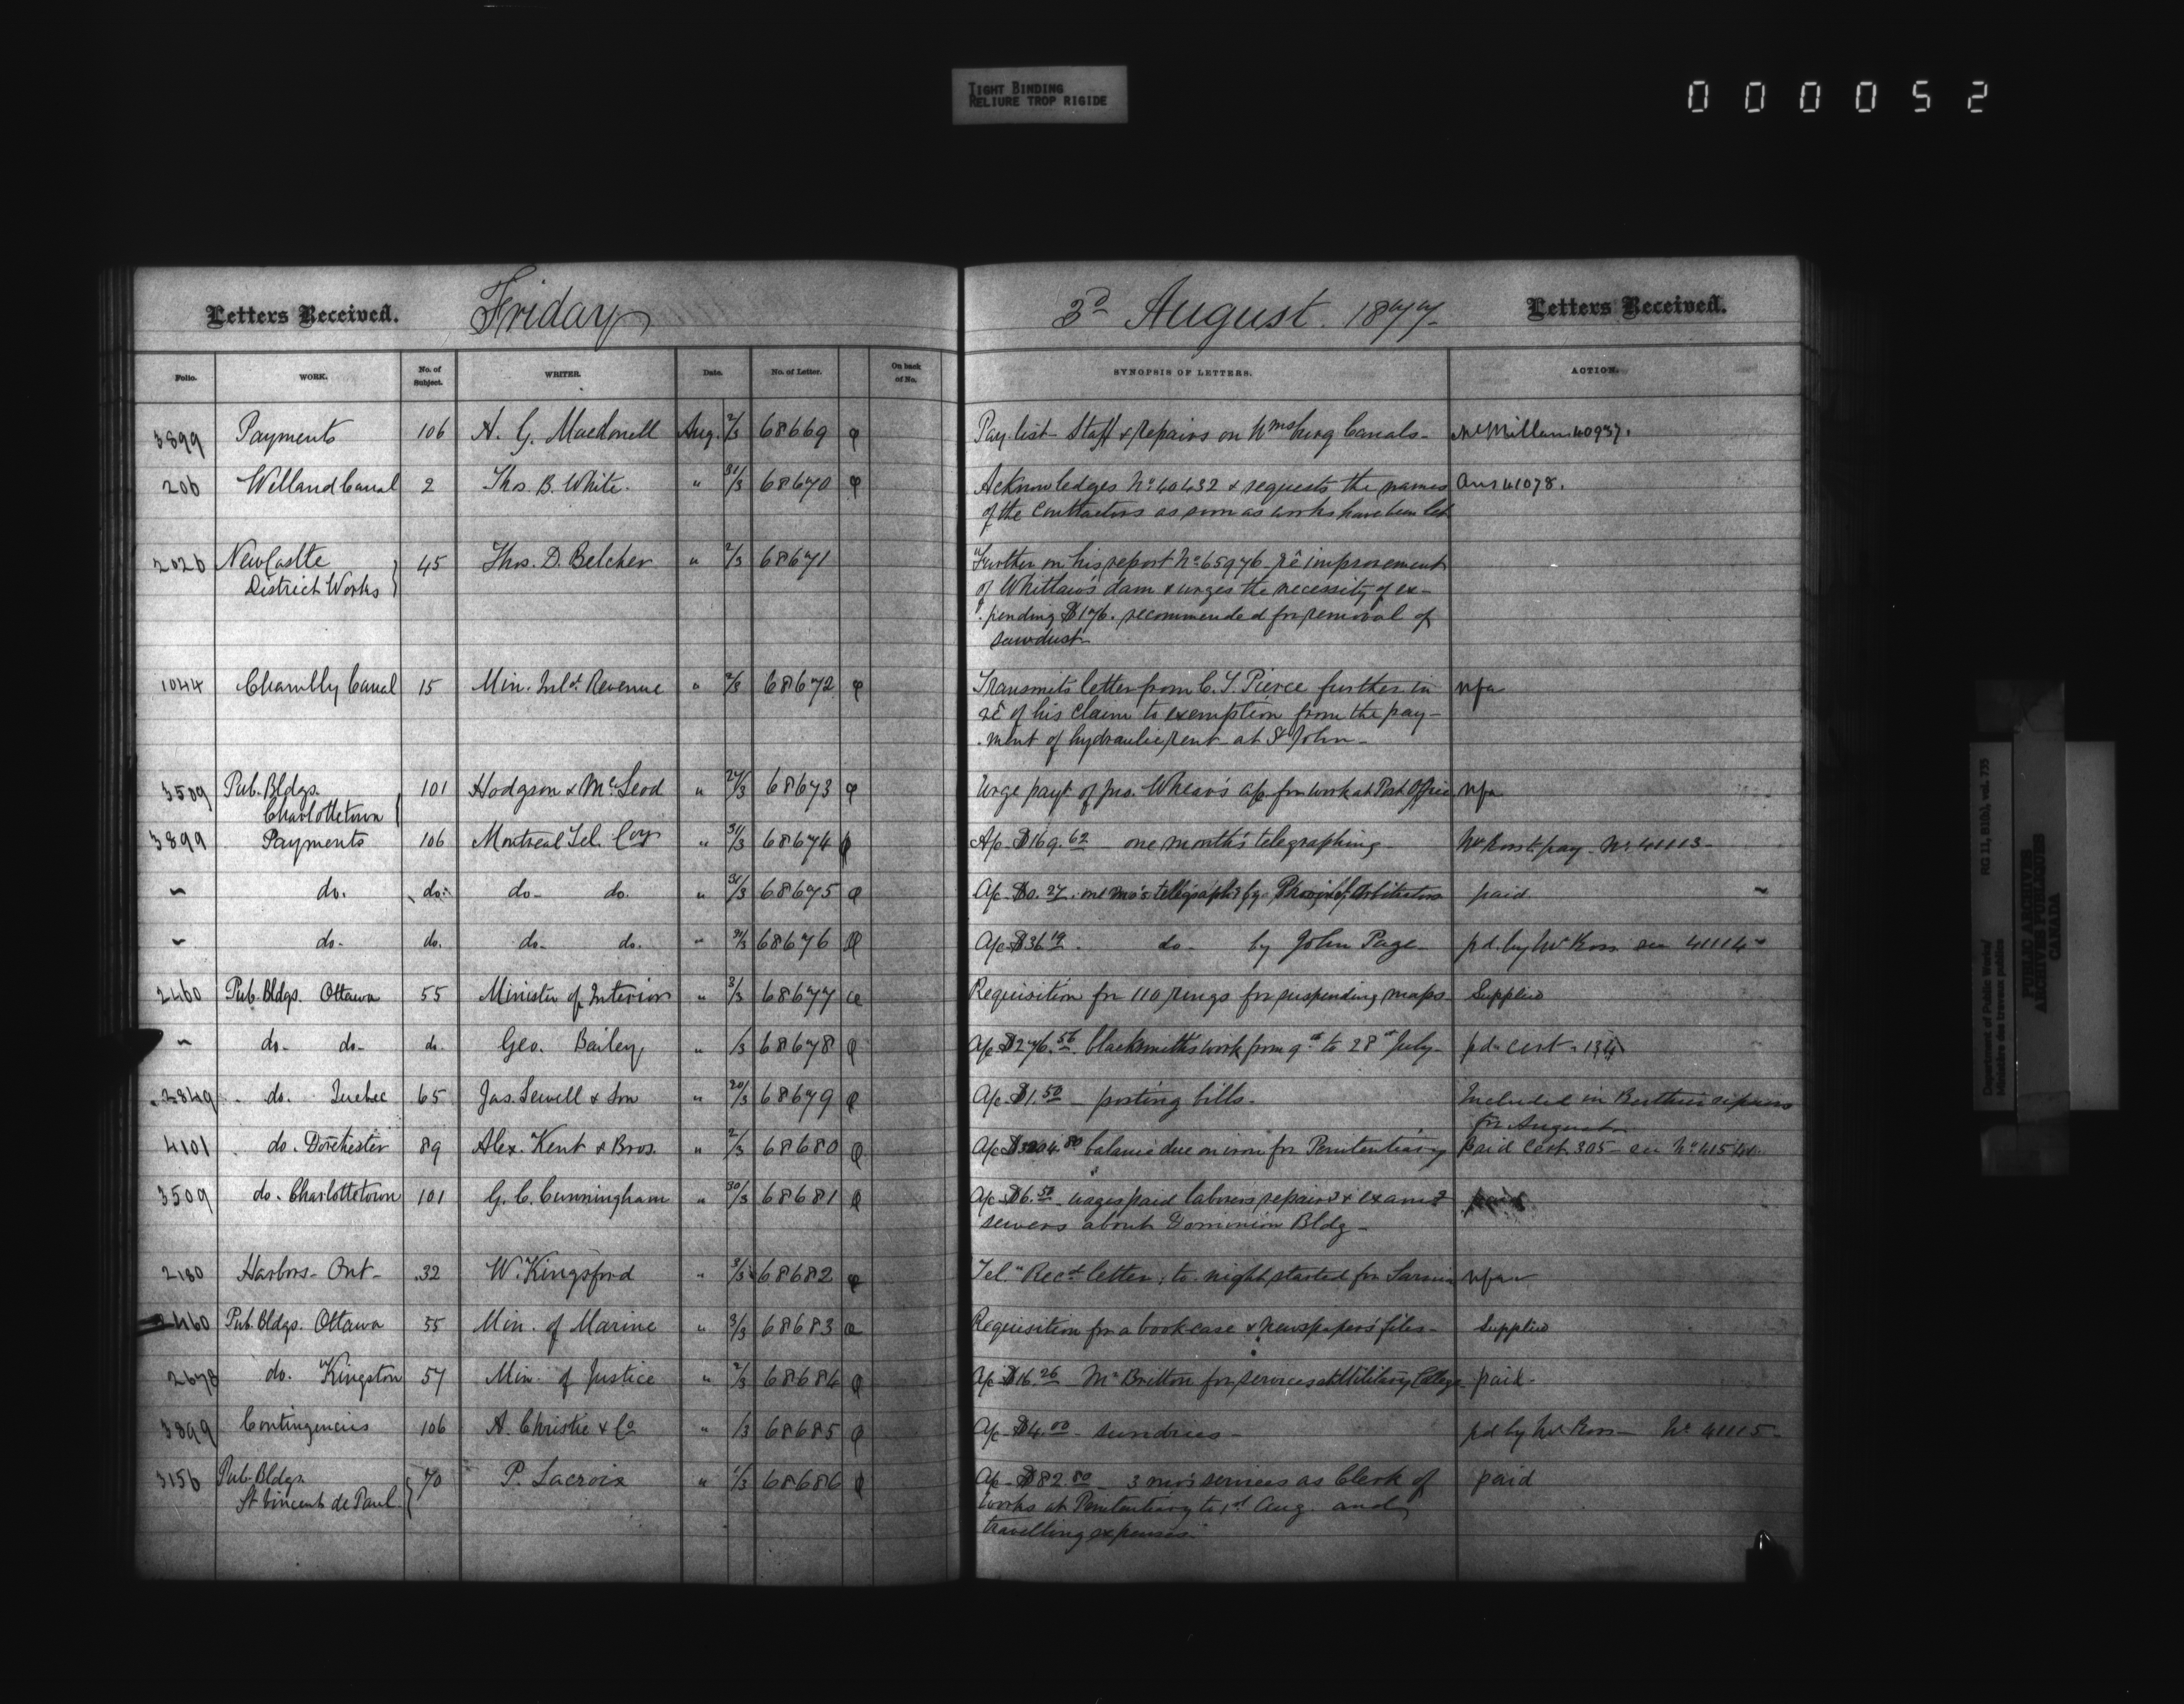 TIGHT BINDING
RELIURE TROP RIGIDE
0 0 0 0 5 2
Letters Received. Friday 3d August. 1877- Letters Received.
Folio. WORK. No. of Subject. WRITER. Date. No. of Letter. On back of No. SYNOPSIS OF LETTERS. ACTION.
3899 Payments 106 A. G. Macdonell Aug. 2/3 68669 Pay list- Staff & repairs on Wmsburg Canals- McMillan 40937.
206 Welland Canal 2 Thos. B. White. " 31/3 68670 Acknowledges No 40432 & requests the names Ans 41078.
of the Contractors as soon as works have been let
2026 NewCastle 45 Thos. D. Belcher " 2/3 68671 Further on his report No 65976 - rê improvement
District Works of Whitlaw's dam & urges the necessity of ex-
pending $176. recommended for removal of
sawdust-
1044 Chambly Canal 15 Min. Inld. Revenue " 2/3 68672 Transmits letter from C. S. Pierce further in nfa
rê of his claim to exemption from the pay-
ment of hydraulic rent at St John-
3509 Pub. Bldgs. 101 Hodgson & McLeod " 27/3 68673 Urge payt. of Jno. Whear's a/c for work at Post Office nfa
Charlottetown
3899 Payments 106 Montreal Tel. Coy " 31/3 68674 A/c $169.62 - one month's telegraphing- Mr Ross to pay. No. 41113-
" do. do. do- do. " 31/3 68675 A/c $0.27. one mo's telegraphg by Provinl. Arbitrators paid.
" do- do. do- do. " 31/3 68676 A/c $36.19. do- by John Page- pd. by Mr Ross see 41114-
2460 Pub. Bldgs. Ottawa 55 Minister of Interior " 3/3 68677 Requisition for 110 rings for suspending maps- Supplied
" do- do- do. Geo. Bailey " /3 68678 A/c $276.56. blacksmith's work from 9th to 28th July- pd. cert. 134
2849 do. Quebec 65 Jas. Sewell & Son " 20/3 68679 A/c $1.50 - posting bills- Included in
for August
4101 do. Dorchester 89 Alex. Kent & Bros. " 2/3 68680 balance due on iron for Penitentiary Paid Cert. 305- see No 41541
3509 do. Charlottetown 101 G. C. Cunningham " 30/3 68681 A/c $6.50 wages paid laborers repairg & examg
sewers about Dominion Bldg-
2180 Harbors- Ont- 32 W. Kingsford " 3/3 68682 Tel. "Recd. letter, to-night started for Sarnia nfa
2460 Pub. Bldgs. Ottawa 55 Min. of Marine " 3/3 68683 Requisition for a book case & newspapers files- Supplied
2678 do. Kingston 57 Min. of Justice " 2/3 68684 A/c $16.26 Mr Britton for services at Military College paid-
3899 Contingencies 106 A. Christie & Co " /3 68685 A/c $4.00 - sundries- pd by Mr Ross- No 41115-
3156 Pub. Bldgs 70 P. Lacroix " 1/3 68686 A/c $82.80 - 3 mo's services as Clerk of paid
St Vincent de Paul. works at Penitentiary to 1st Aug. and
travelling expenses-
Department of Public Works/ RG 11, B1(b), vol. 735
Ministère des travaux publics
PUBLIC ARCHIVES
ARCHIVES PUBLIQUES
CANADA